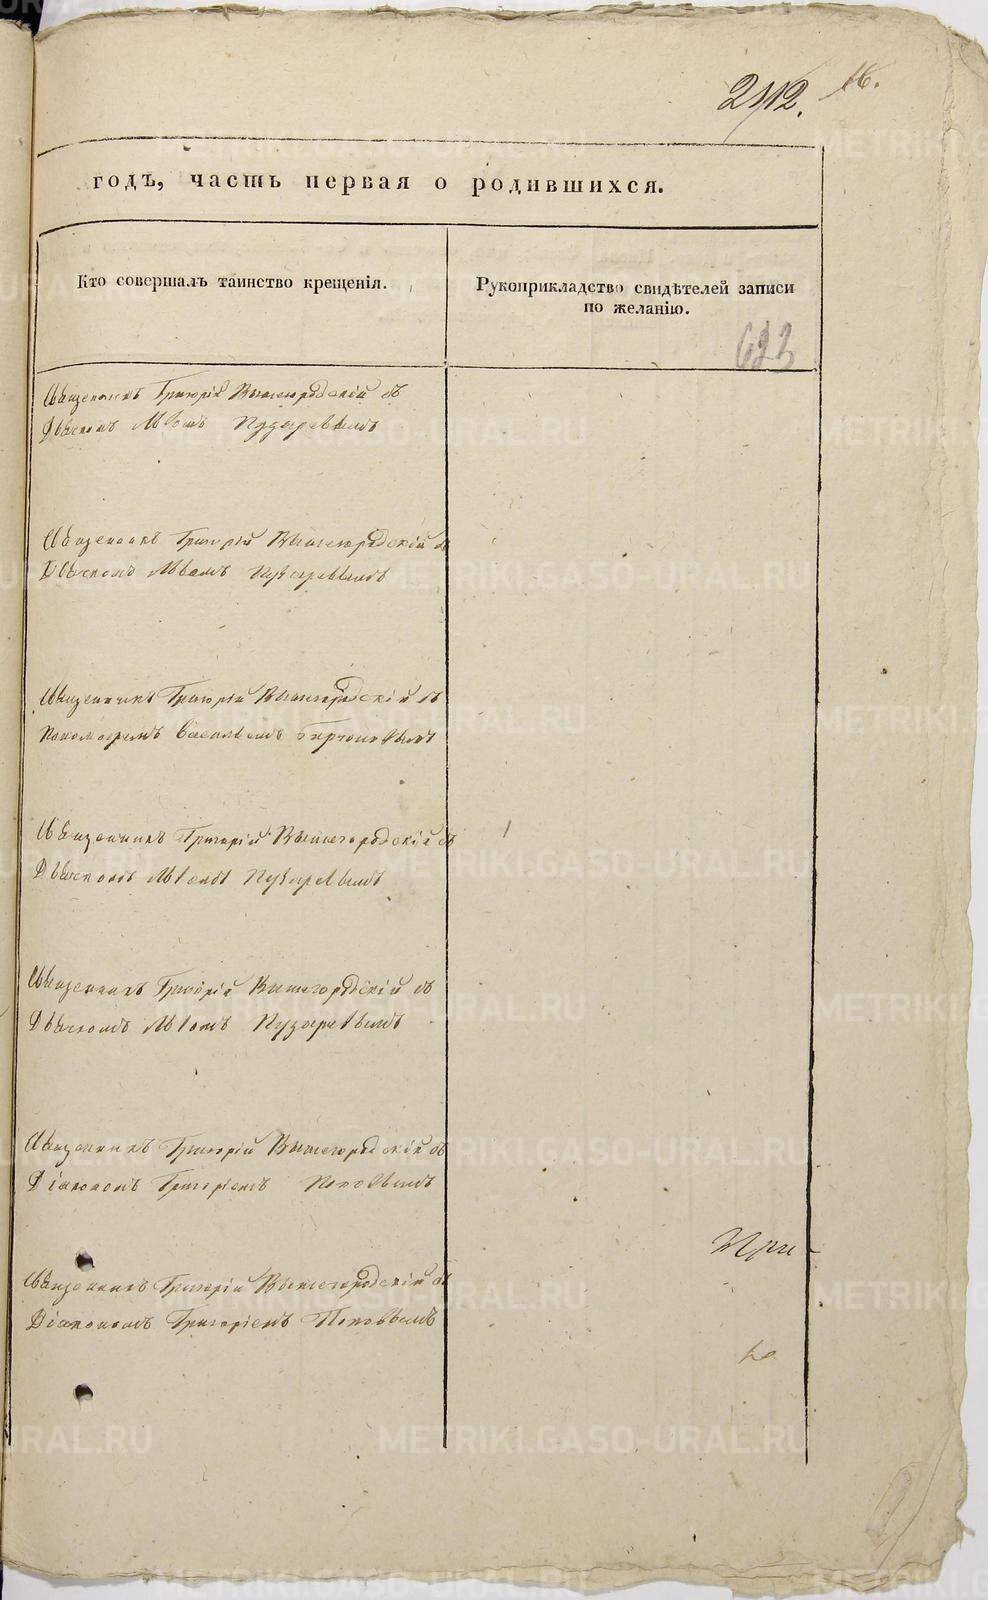 16.
годъ, часть первая о родившихся.
Кто совершалъ таинство крещенія.
Рукоприкладство свидѣтелей записи
по желанію.
622
Священникъ Григорій Вышегородскій съ
Дьячкомъ Львомъ Пузыревымъ
Священникъ Григорій Вышегородскій съ
Дьячкомъ Львомъ Пузыревымъ
Священникъ Григорій Вышегородскій съ
Пономаремъ Васильемъ
Священникъ Григорій Вышегородскій съ
Дьячкомъ Львомъ Пузыревымъ
Священникъ Григорій Вышегородскій съ
Дьячкомъ Львомъ Пузыревымъ
Священникъ Григорій Вышегородскій съ
Діакономъ Григоріемъ Поповымъ
При-
Священникъ Григорій Вышегородскій съ
Діакономъ Григоріемъ Поповымъ
METRIKI.GASO-URAL.RU